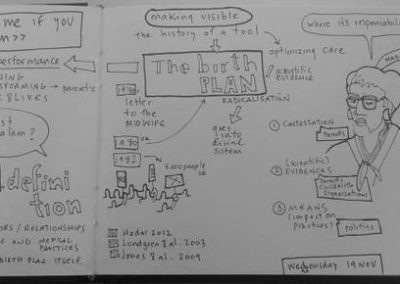 me if you
performance
NING
SFORMING → parent's
E & LIVES
st
alism?
defini
tion
ORS / RELATIONSHIPS
E AND MEDICAL
PRACTICES
BIRTH PLAN ITSELF
making visible
the history of a tool
The birth
PLAN
optimizing care
scientific
EVIDENCE
RADICALISATION
letter
to the
MIDWIFE
goes
into
system
1980 UK
1992
6000 people
Hadar 2012
Lundgren & al. 2003
Jones & al. 2009
where is
① CONTESTATION
Parents
② (Scientific)
EVIDENCES
Parents
Organisations
③ MEANS
(impact on
practices)
politics
Wednesday 19 NOV